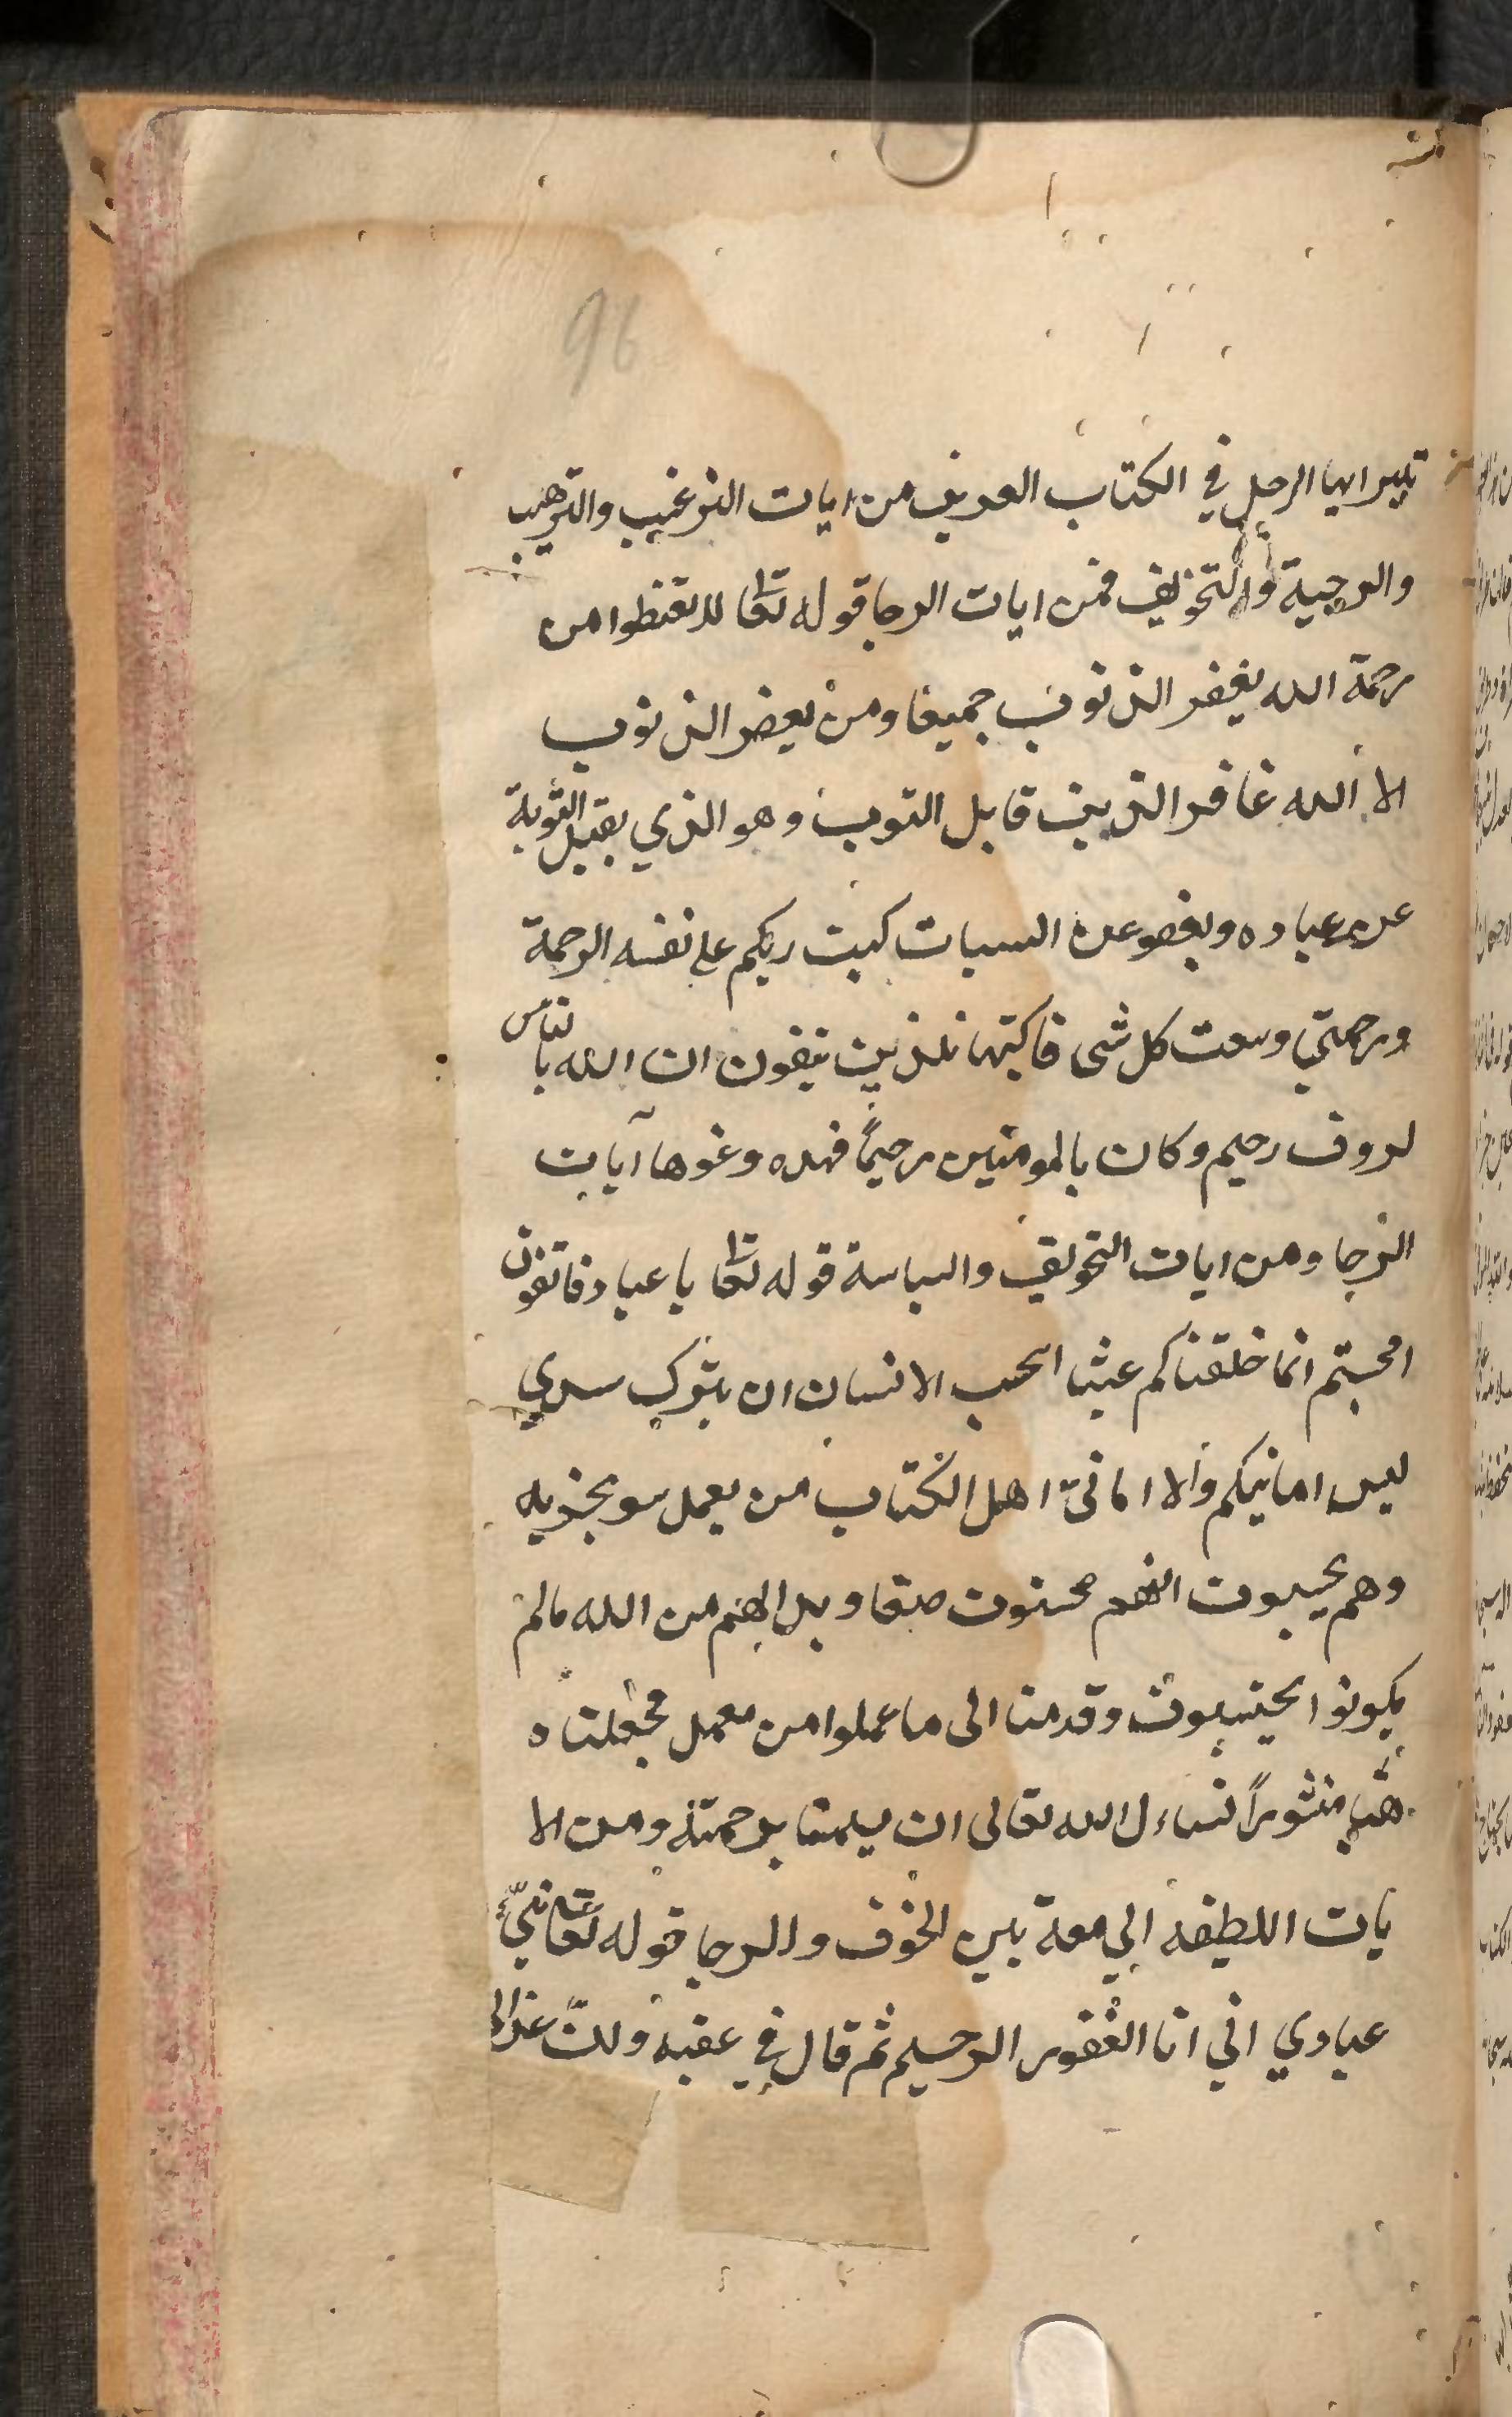 96
ايها الرجل في الكتاب العزيز من ايات الترغيب والترهيب
والرجية والتخويف فمن ايات الرجا قوله تعا لا تقنطوا من
رحمة الله يغفر الذنوب جميعا ومن يغفر الذنوب
الا الله غافر الذنب قابل التوب وهو الذي يقبل التوبة
عن عباده ويعفو عن السيات كتب ربكم على نفسه الرحمة
ورحمتي وسعت كل شى فاكتبها للذين يتقون ان الله بالناس
لروف رحيم وكان بالمومنين رحيمًا فهده ونحوها آيات
الرجا ومن ايات التخويف والسياسة قوله تعا يا عباد فاتقون
افحسبتم انما خلقناكم عبثا ايحسب الانسان ان يترك سدي
ليس امانيكم ولا امانيّ اهل الكتاب من يعمل سو يجزبه
وهم يحسبون انهم محسنون صنعا وبدا لهم من الله مالم
يكونوا يحتسبون وقدمنا الى ما عملوا من عمل فجعلناه
هبا منثورًا نساءل الله تعالى ان يرحمته ومن الا
يات اللطيفه الجامعة بين الخوف والرجا قوله تعا نبّيء
عبادي اني انا الغفور الرحيم ثم قال في عقبه وانّ عذابي